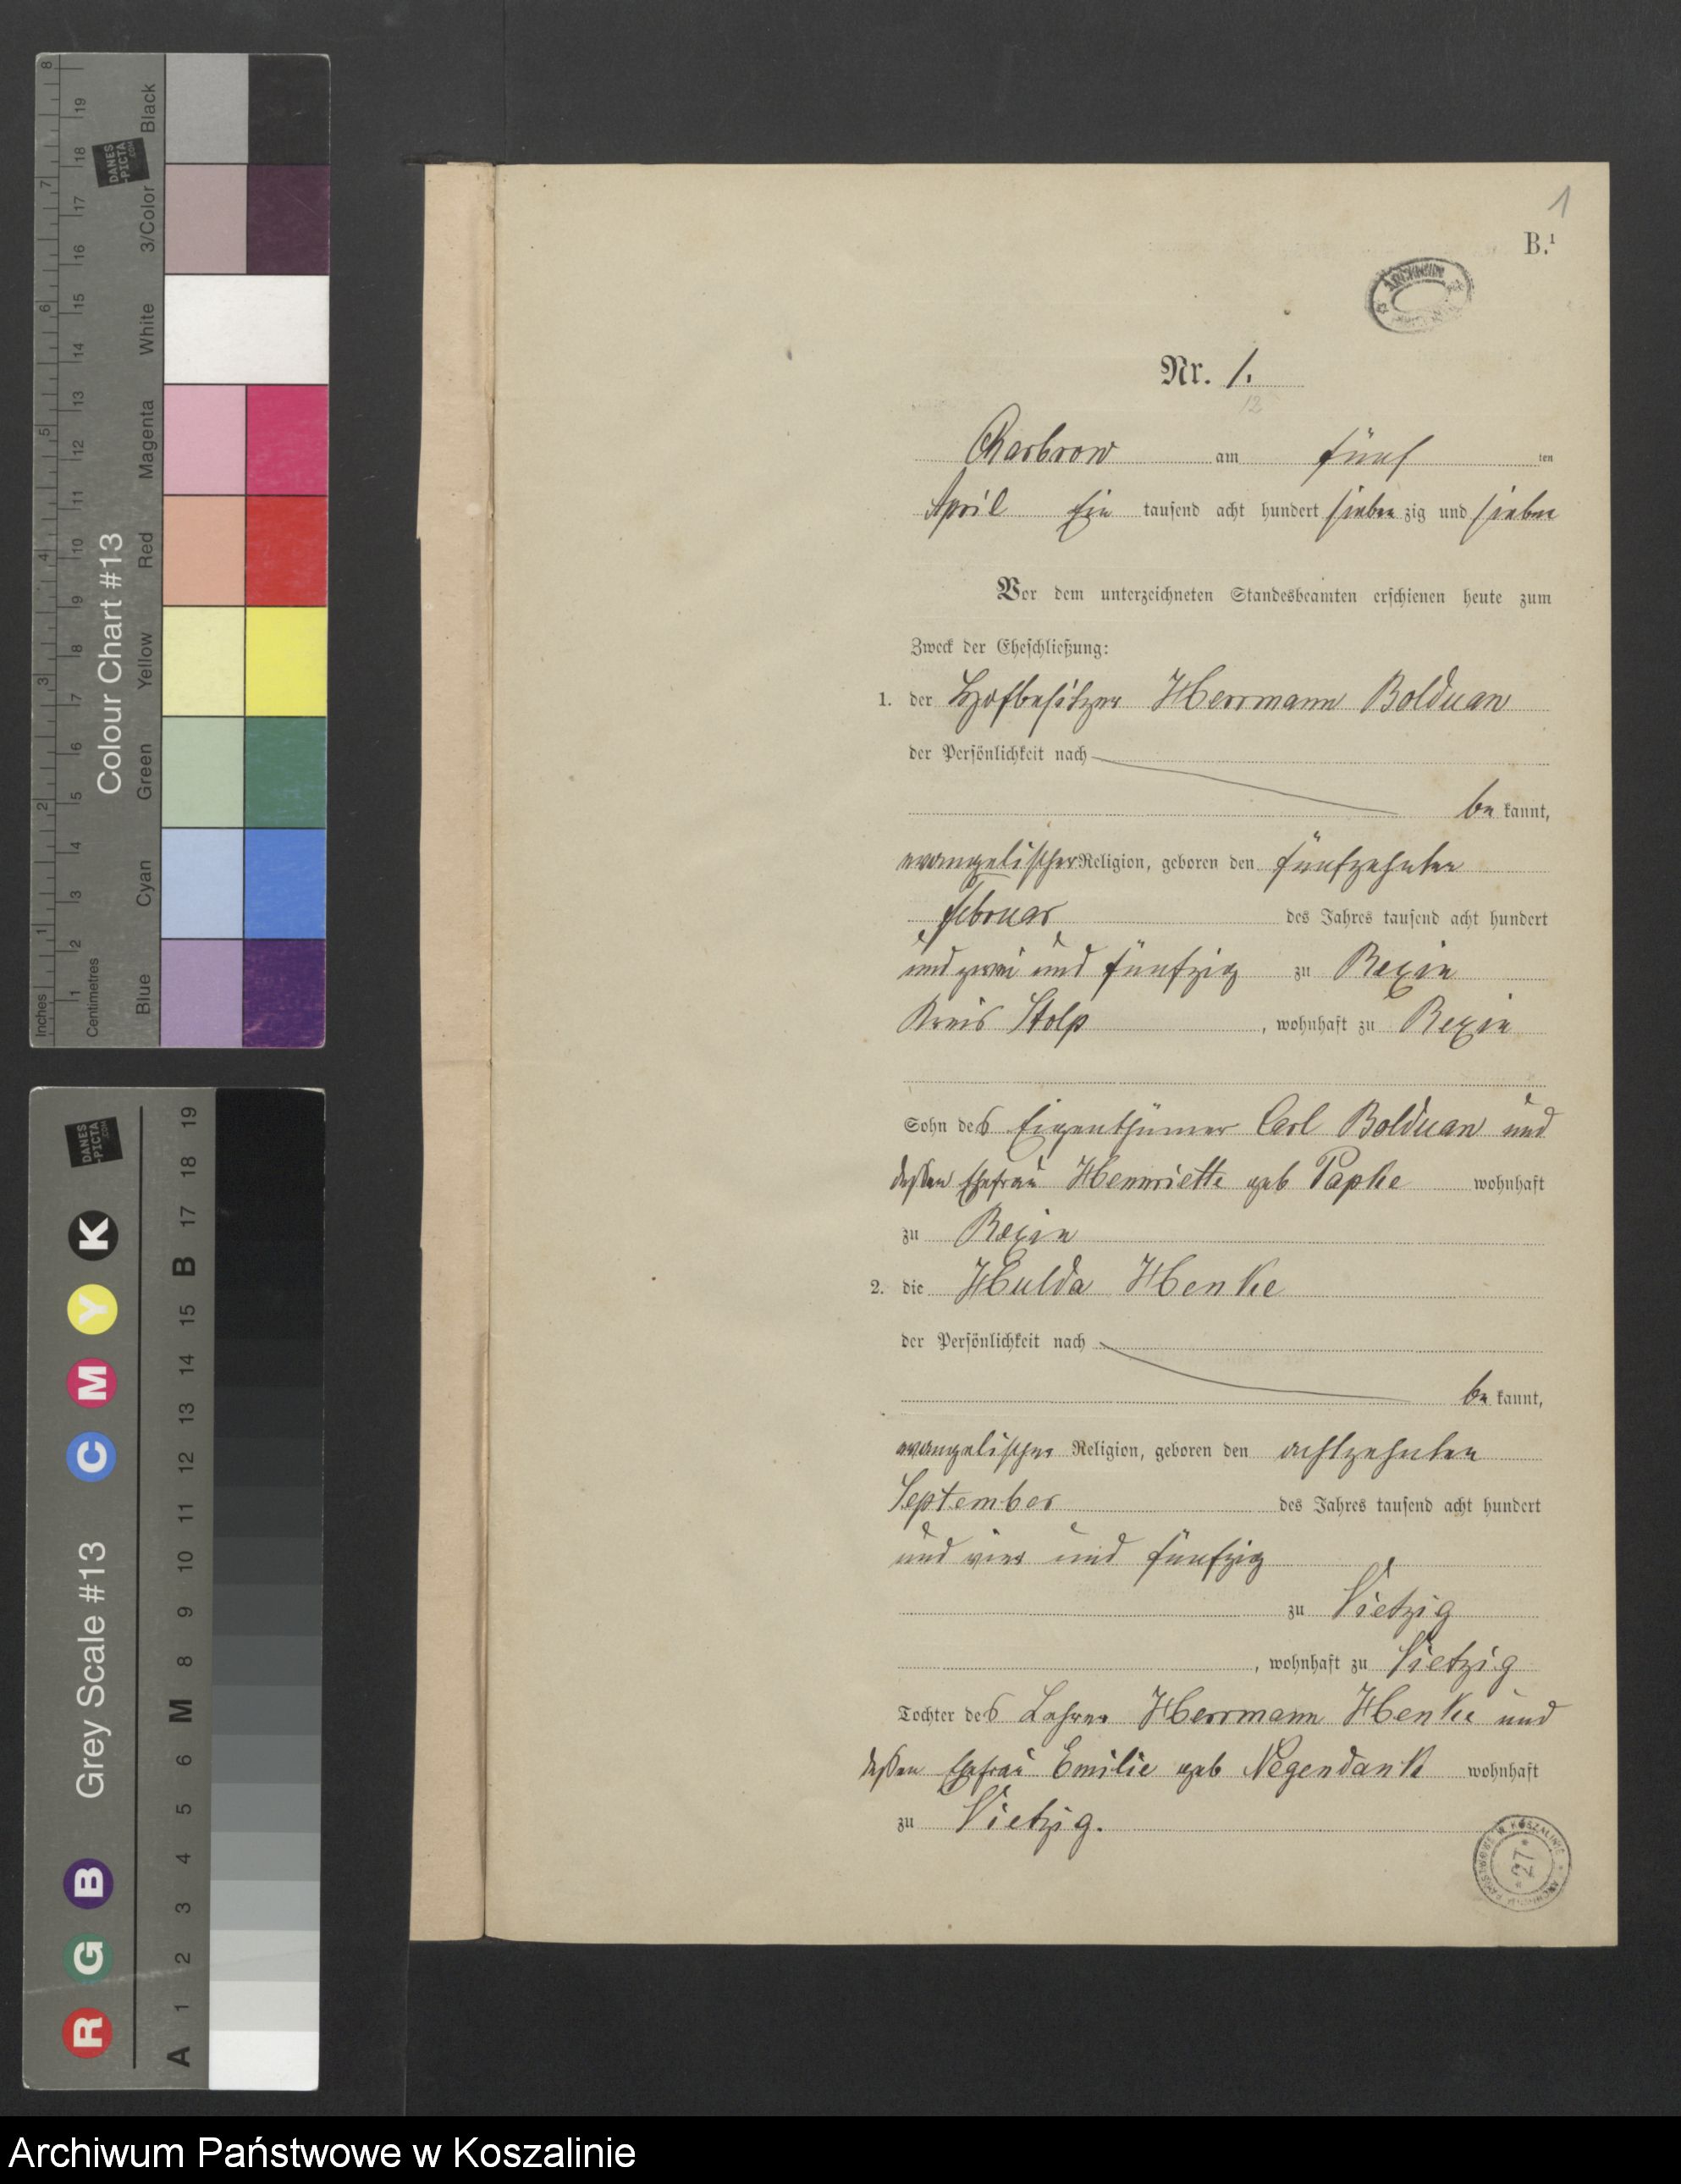 1
B.¹
Nr. 1.
12
Charbrow am fünf ten
April Ein tausend acht hundert sieben zig und sieben
Vor dem unterzeichneten Standesbeamten erschienen heute zum
Zweck der Eheschließung:
1. der Hofbesitzer Herrmann Bolduan
der Persönlichkeit nach
be kannt,
evangelischer Religion, geboren den fünfzehnten
Februar des Jahres tausend acht hundert
und zwei und fünfzig zu Rexin
Kreis Stolp, wohnhaft zu Rexin
Sohn des Eigenthümer Carl Bolduan und
dessen Ehefrau Hennriette geb Papke wohnhaft
zu Rexin
2. die Hulda Henke
der Persönlichkeit nach
be kannt,
evangelischer Religion, geboren den achtzehnten
September des Jahres tausend acht hundert
und vier und fünfzig
zu Vietzig
, wohnhaft zu Vietzig
Tochter des Lehrer Herrmann Henke und
dessen Ehefrau Emilie geb Negendank wohnhaft
zu Vietzig.
ARCHIWUM PAŃSTWOWE W KOSZALINIE
* 27 *
Inches
1 2 3 4 5 6 7 8
Centimetres
1 2 3 4 5 6 7 8 9 10 11 12 13 14 15 16 17 18 19
Colour Chart #13
DANES
-PICTA
.COM
Blue Cyan Green Yellow Red Magenta White 3/Color Black
Grey Scale #13
DANES
-PICTA
.COM
R G B C M Y K
A 1 2 3 4 5 6 M 8 9 10 11 12 13 14 15 B 17 18 19
Archiwum Państwowe w Koszalinie